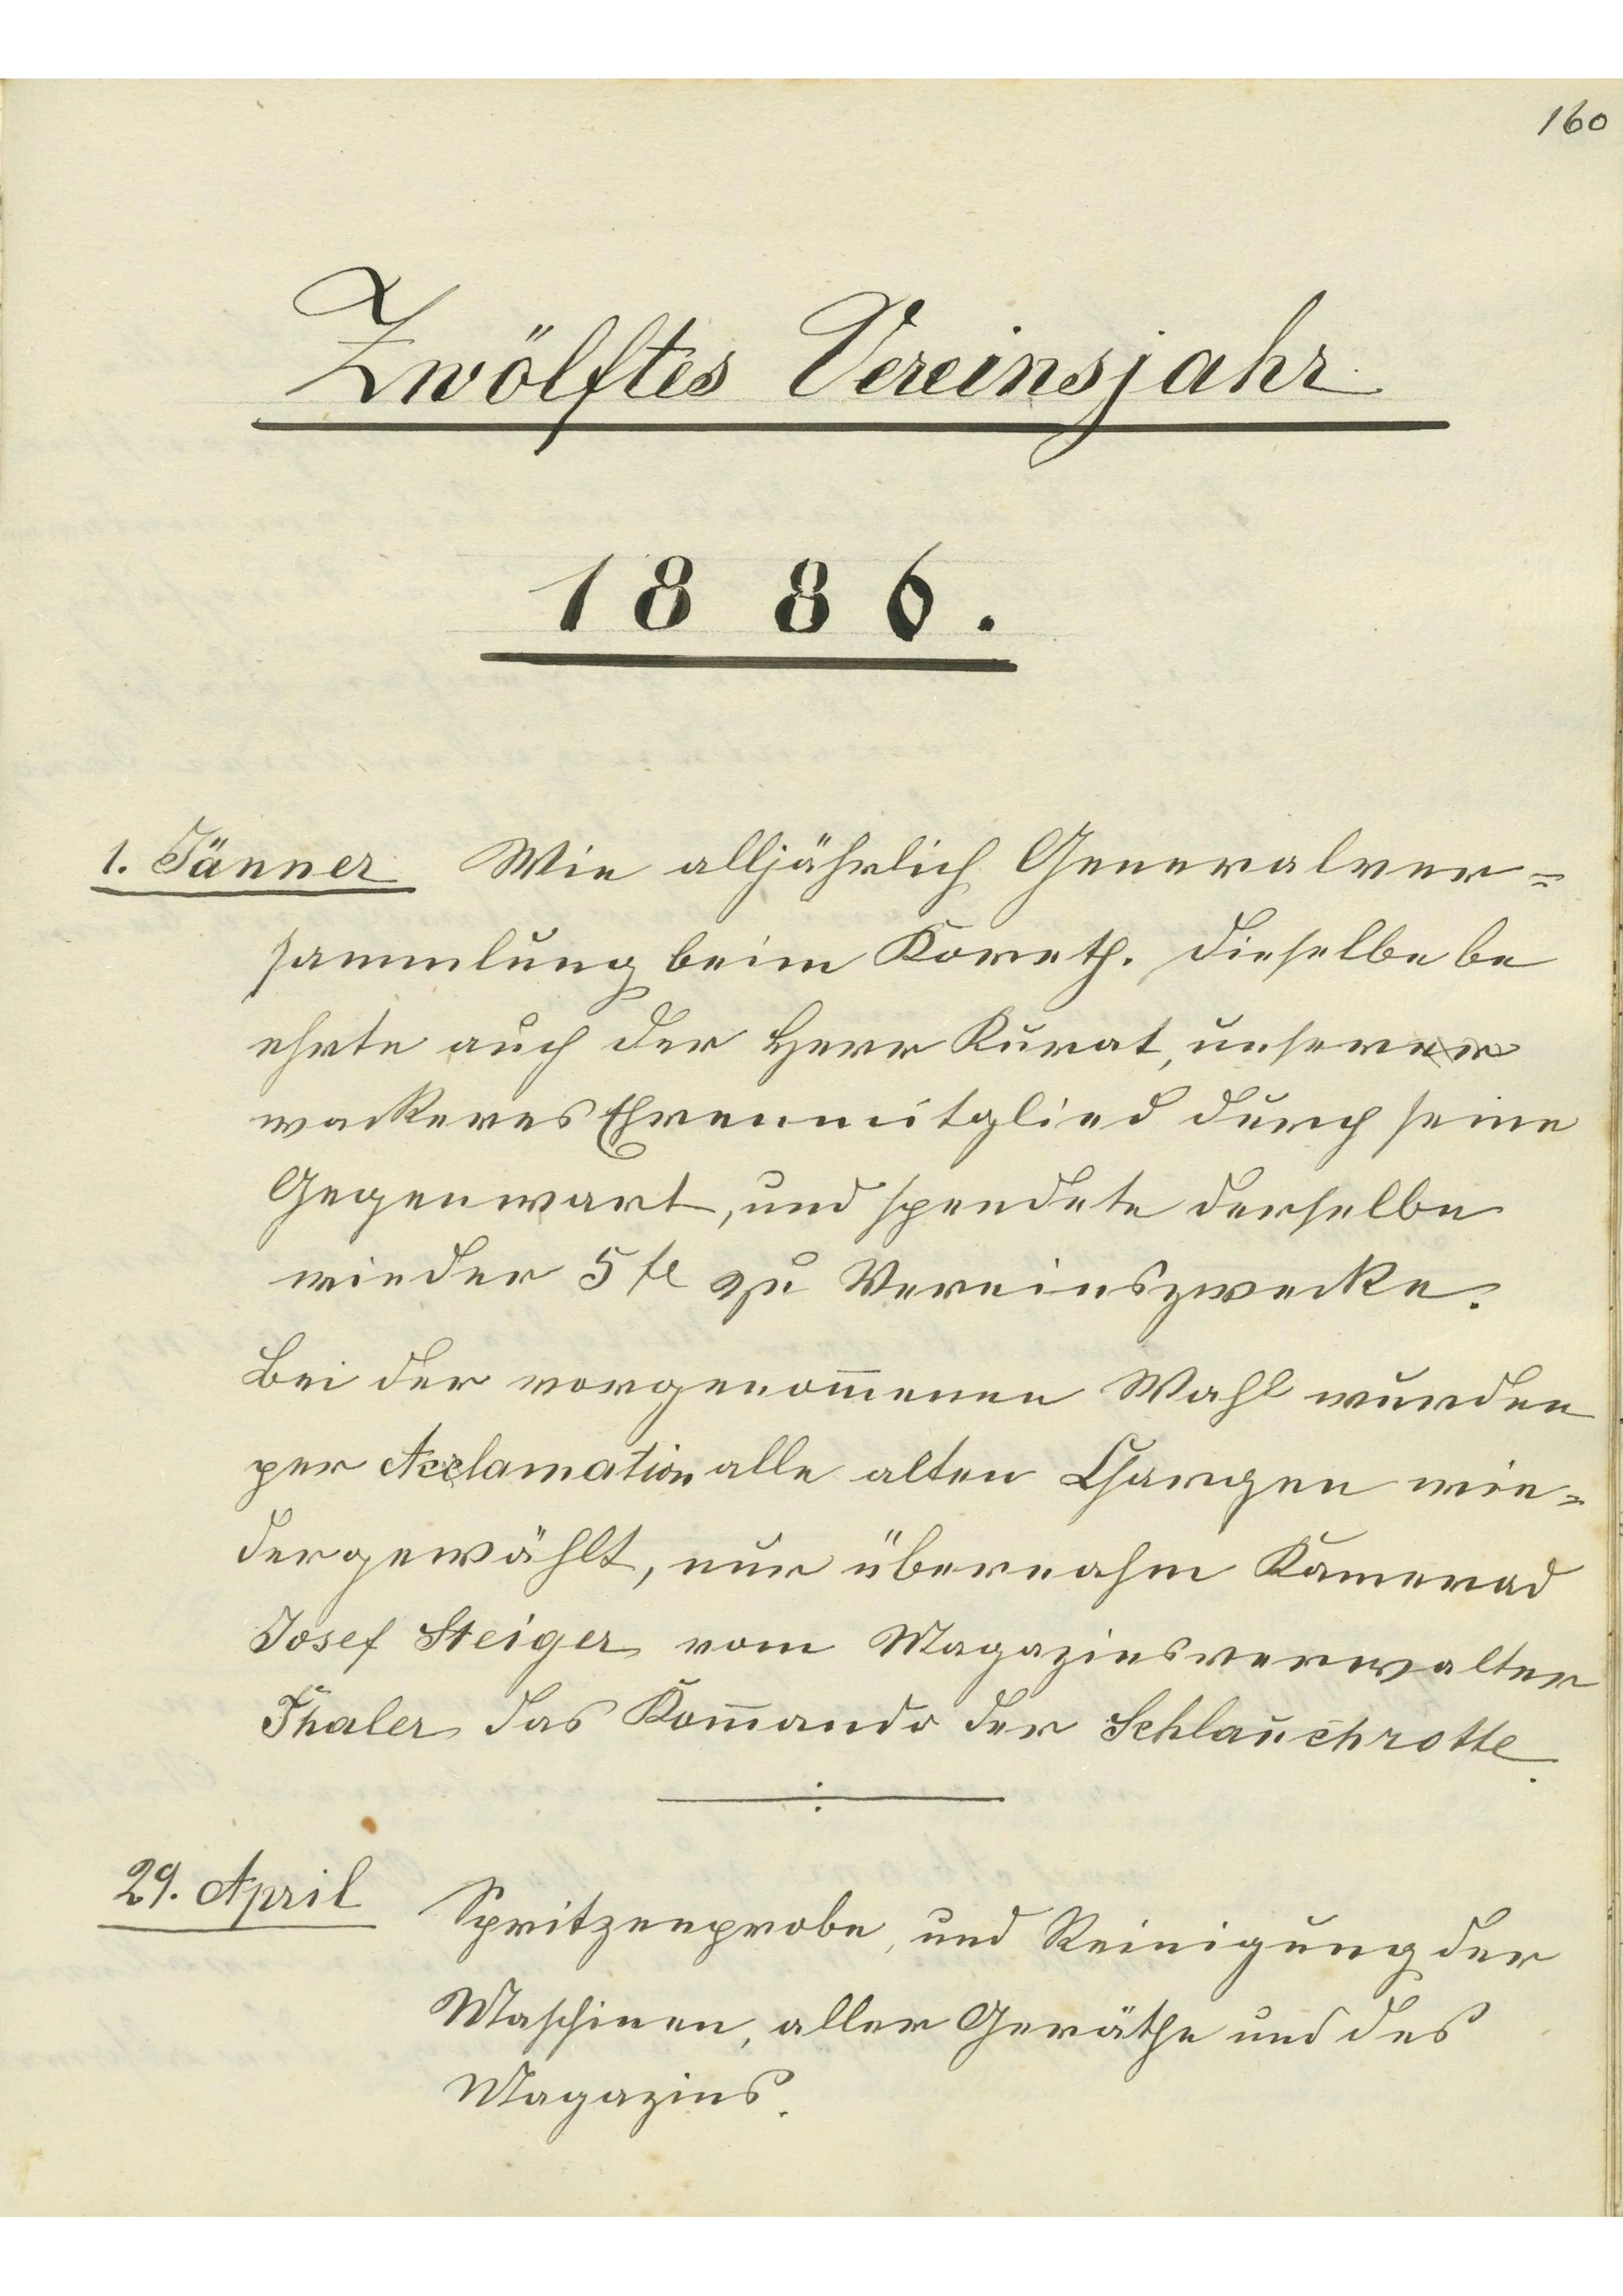 160
Zwölftes Vereinsjahr
1886.
1. Jänner Wie alljährlich Generalver=
sammlung beim Koreth. Dieselbe be
ehrte auch der Herr Kurat, unser
wackeres Ehrenmitglied durch seine
Gegenwart, und spendete derselbe
wieder 5 fl zu Vereinszwecke.
Bei der vorgenom̄enen Wahl wurden
per Acclamation alle alten Chargen wie=
dergewählt, nur übernahm Kamerad
Josef Steiger vom Magazinsverwalter
Thaler das Kom̄ando der Schlauchrotte.
29. April Spritzenprobe, und Reinigung der
Maschinen, aller Geräthe und des
Magazins.